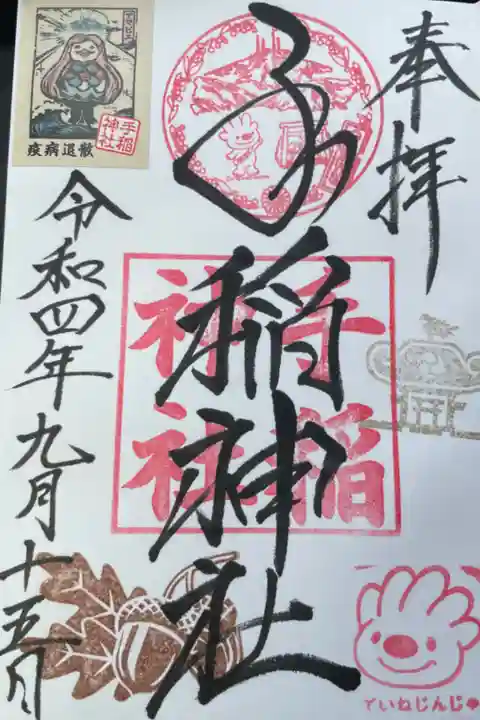 奉拝
手稲神社
手稲
神社
令和四年九月十五日
アマビエ
手稲
神社
疫病退散
ていねじんじゃ